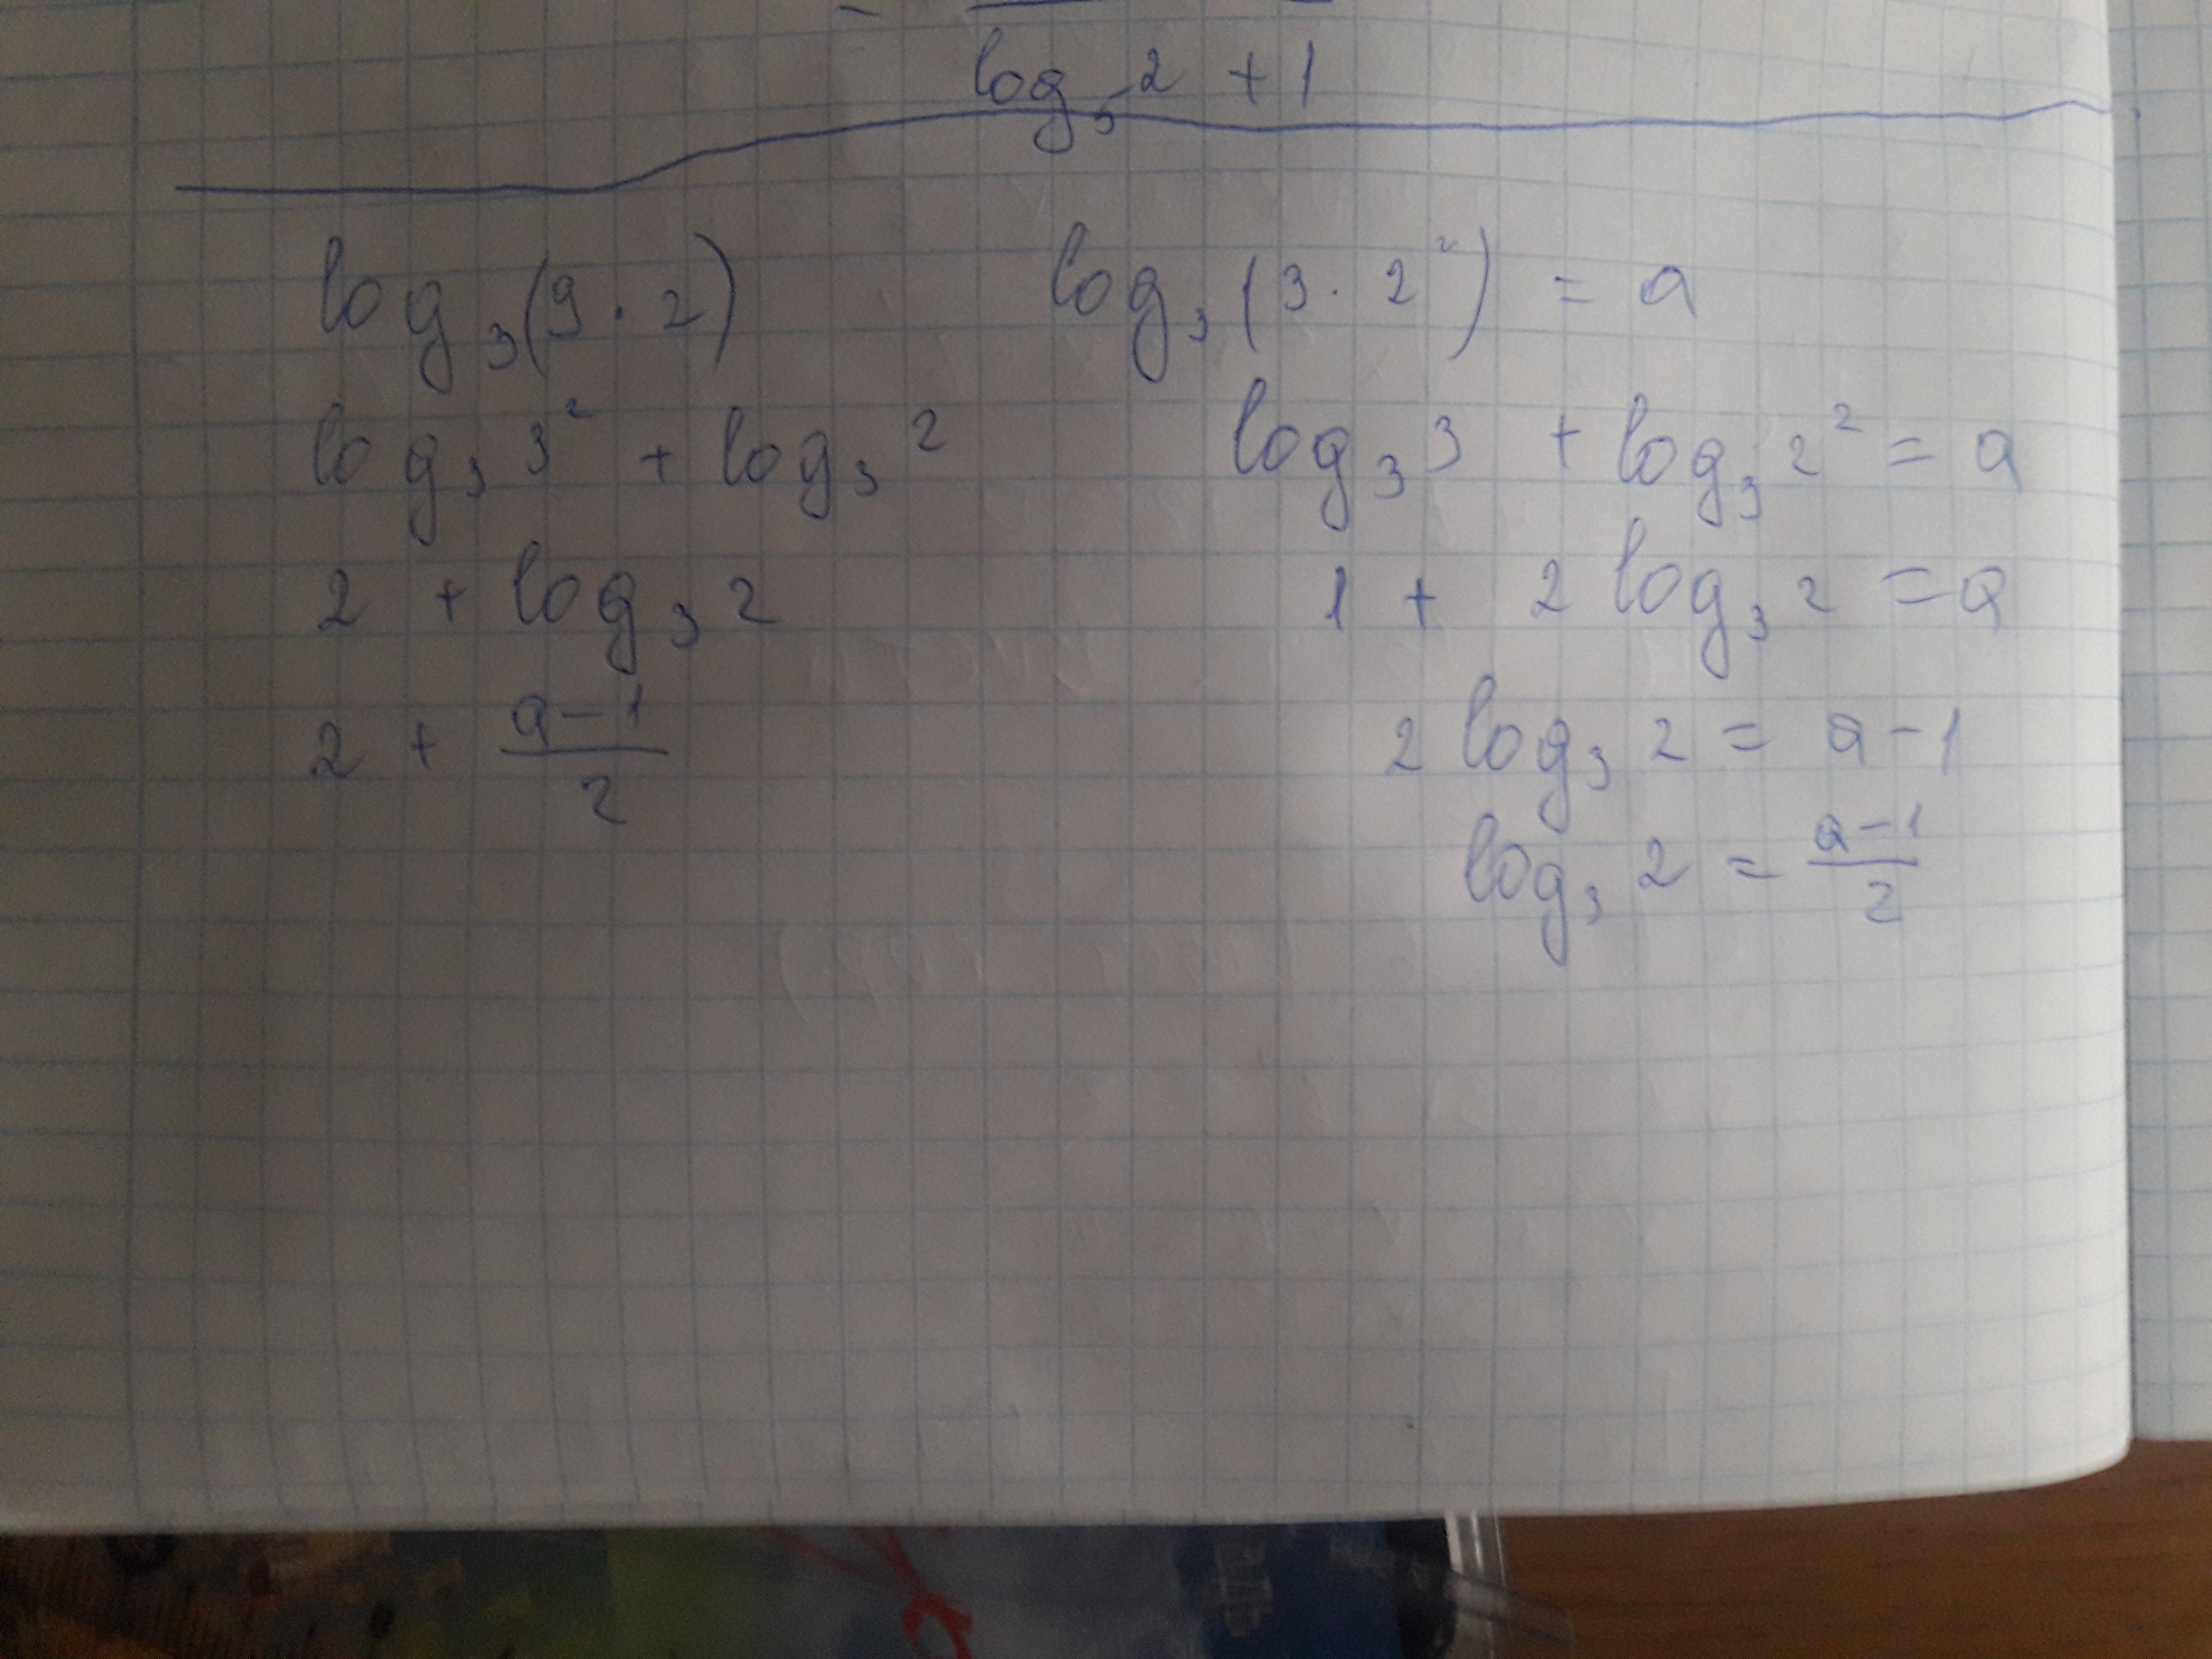 log₅ 2 + 1
log₃(9 · 2)
log₃ 3² + log₃ 2
2 + log₃ 2
2 + (a-1)/2
log₃(3 · 2²) = a
log₃ 3 + log₃ 2² = a
1 + 2 log₃ 2 = a
2 log₃ 2 = a - 1
log₃ 2 = (a-1)/2